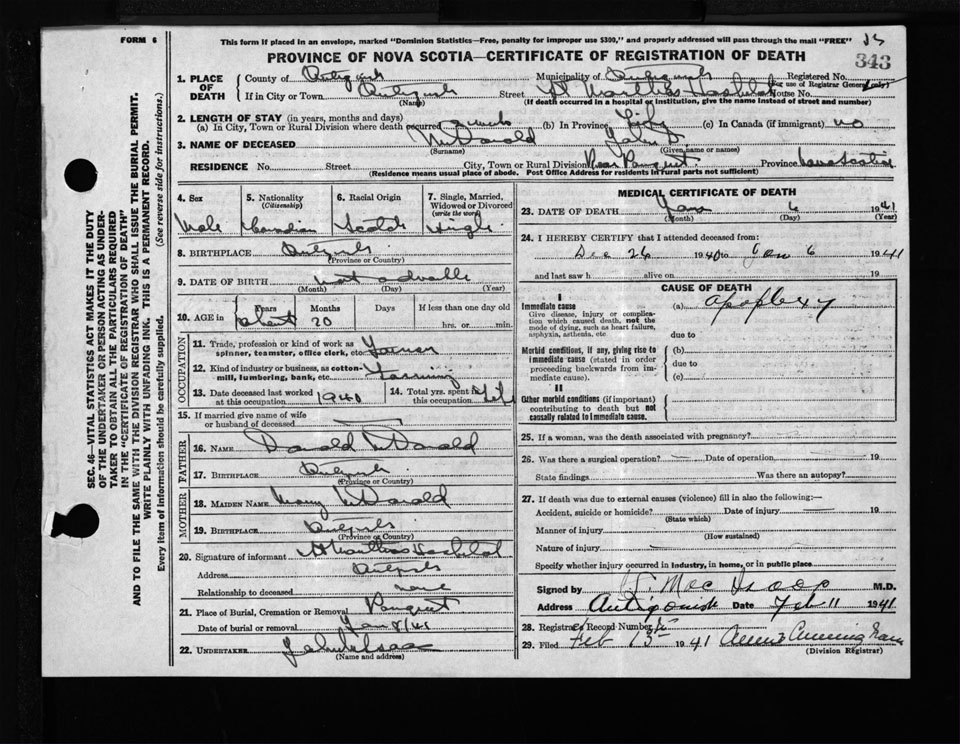 FORM 6
This form if placed in an envelope, marked "Dominion Statistics—Free, penalty for improper use $300," and properly addressed will pass through the mail "FREE"
343
PROVINCE OF NOVA SCOTIA—CERTIFICATE OF REGISTRATION OF DEATH
SEC. 46—VITAL STATISTICS ACT MAKES IT THE DUTY
OF THE UNDERTAKER OR PERSON ACTING AS UNDER-
TAKER TO OBTAIN ALL THE PARTICULARS REQUIRED
IN THE "CERTIFICATE OF REGISTRATION OF DEATH"
AND TO FILE THE SAME WITH THE DIVISION REGISTRAR WHO SHALL ISSUE THE BURIAL PERMIT.
WRITE PLAINLY WITH UNFADING INK. THIS IS A PERMANENT RECORD.
Every item of information should be carefully supplied. (See reverse side for instructions.)
1. PLACE OF DEATH County of Antigonish Municipality of Antigonish Registered No.
(For use of Registrar General only)
If in City or Town Antigonish Street St Marthas Hospital House No.
(Name) (If death occurred in a hospital or institution, give the name instead of street and number)
2. LENGTH OF STAY (in years, months and days)
(a) In City, Town or Rural Division where death occurred 2 weeks (b) In Province Life (c) In Canada (if immigrant) no
3. NAME OF DECEASED McDonald John
(Surname) (Given name or names)
RESIDENCE No. Street City, Town or Rural Division Near Pomquet Province Nova Scotia
(Residence means usual place of abode. Post Office Address for residents in rural parts not sufficient)
4. Sex
Male
5. Nationality
(Citizenship)
Canadian
6. Racial Origin
Scotch
7. Single, Married,
Widowed or Divorced
(write the word)
Single
8. BIRTHPLACE Antigonish
(Province or Country)
9. DATE OF BIRTH not
(Month) (Day) (Year)
10. AGE in Years Months Days If less than one day old
about 70 hrs. or min.
OCCUPATION
11. Trade, profession or kind of work as
spinner, teamster, office clerk, etc. Farmer
12. Kind of industry or business, as cotton-
mill, lumbering, bank, etc. Farming
13. Date deceased last worked
at this occupation 1940
14. Total yrs. spent in
this occupation Life
15. If married give name of wife
or husband of deceased
FATHER
16. NAME Donald McDonald
17. BIRTHPLACE Antigonish
(Province or Country)
MOTHER
18. MAIDEN NAME Mary McDonald
19. BIRTHPLACE Antigonish
(Province or Country)
20. Signature of informant St Marthas Hospital
Address Antigonish
Relationship to deceased none
21. Place of Burial, Cremation or Removal Pomquet
Date of burial or removal Jan 8/41
22. UNDERTAKER
(Name and address)
MEDICAL CERTIFICATE OF DEATH
23. DATE OF DEATH Jan 6 1941
(Month) (Day) (Year)
24. I HEREBY CERTIFY that I attended deceased from:
Dec 26 1940 to Jan 6 1941
and last saw h alive on 19
CAUSE OF DEATH
I
Immediate cause (a) apoplexy
Give disease, injury or complica-
tion which caused death, not the
mode of dying, such as heart failure,
asphyxia, asthenia, etc. due to
Morbid conditions, if any, giving rise to
immediate cause (stated in order
proceeding backwards from im-
mediate cause).
(b)
due to
(c)
II
Other morbid conditions (if important)
contributing to death but not
causally related to immediate cause.
25. If a woman, was the death associated with pregnancy?
26. Was there a surgical operation? Date of operation 19
State findings Was there an autopsy?
27. If death was due to external causes (violence) fill in also the following:—
Accident, suicide or homicide? Date of injury 19
(State which)
Manner of injury
(How sustained)
Nature of injury
Specify whether injury occurred in industry, in home, or in public place
Signed by M.D.
Address Antigonish Date Feb 11 1941
28. Registrar's Record Number
29. Filed Feb 15 1941
(Division Registrar)